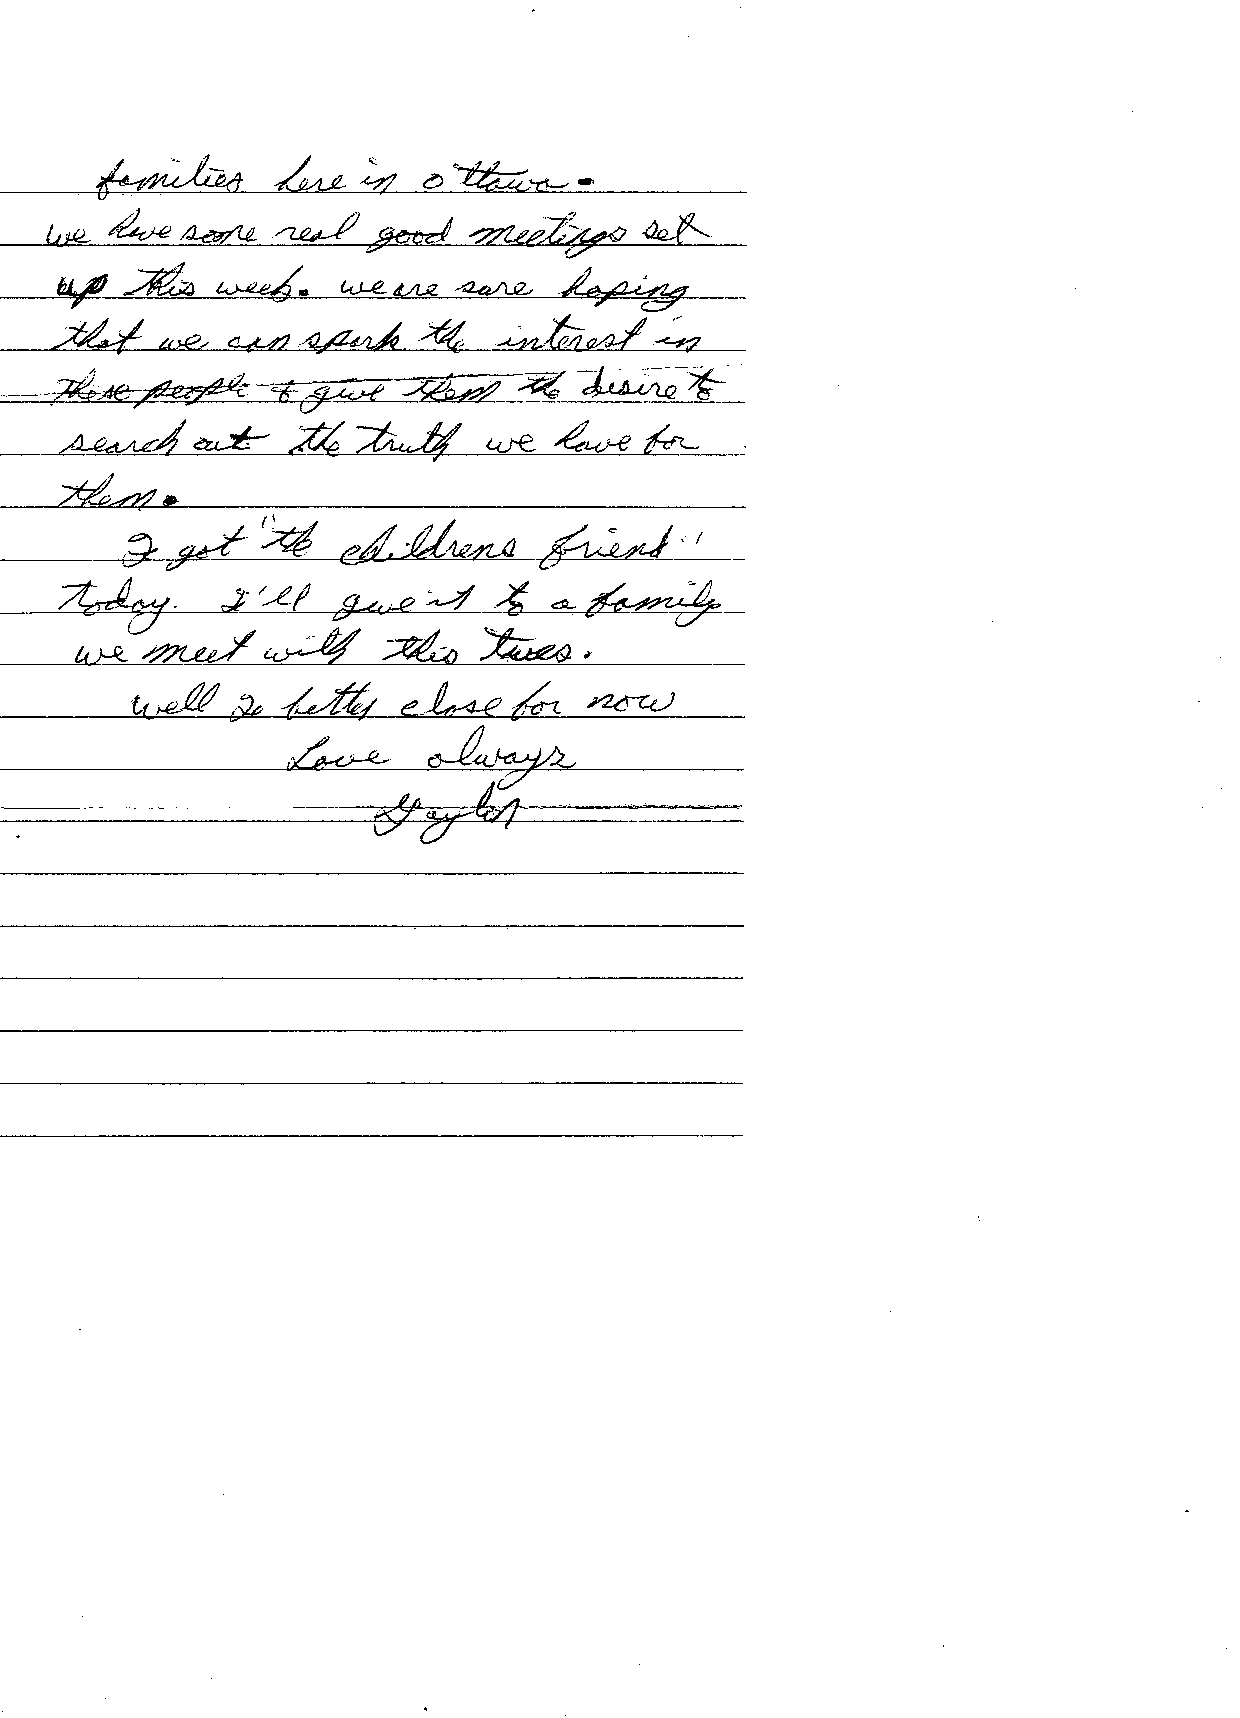 families here in ottawa.
we have some real good meetings set
up this week. we are sure hoping
that we can spark the interest in
these people & give them the desire to
search out the truth we have for
them.
I got "the childrens friend"
today. I'll give it to a family
we meet with this tues.
well I better close for now
Love always
Gaylon